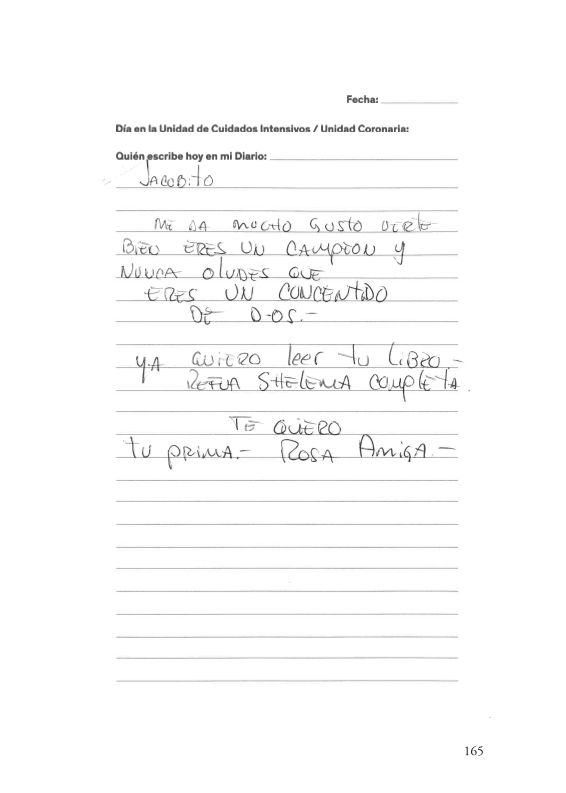 Fecha:
Día en la Unidad de Cuidados Intensivos / Unidad Coronaria:
Quién escribe hoy en mi Diario:
JACOBITO
ME DA MUCHO GUSTO VERTE
BIEN ERES UN CAMPION Y
NUNCA OLVIDES QUE
ERES UN CONCENTIDO
DE DOS.-
YA QUIERO leer tu LIBRO.-
COMPLETA.
TE QUIERO
TU PRIMA.- ROSA AMIGA.-
165